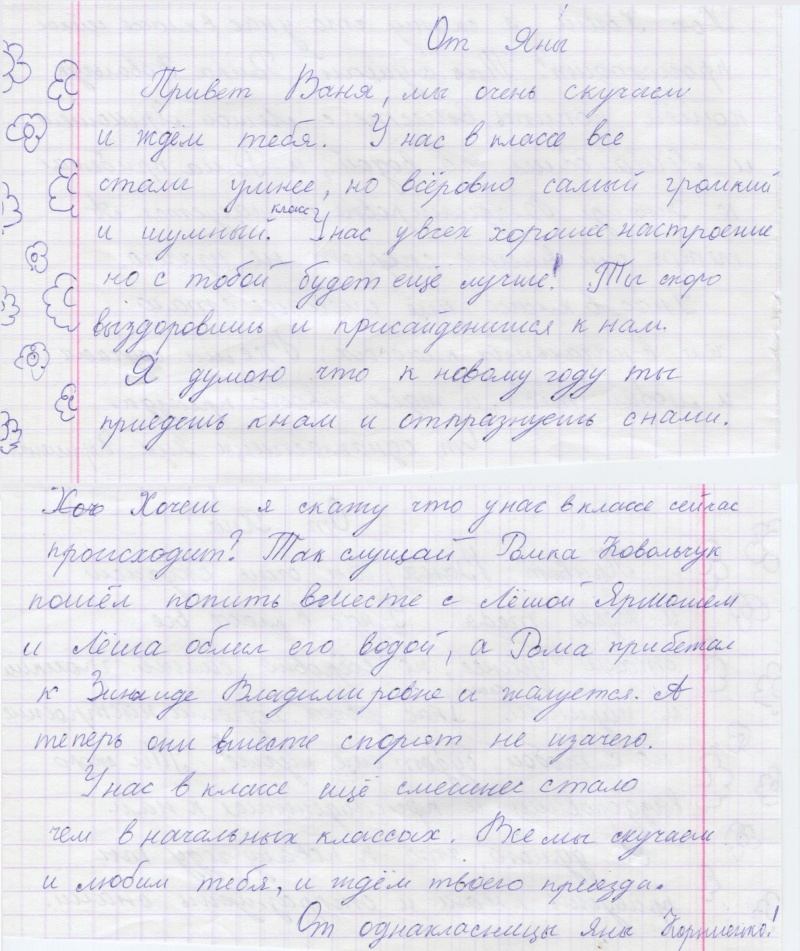 От Яны!
Привет Ваня, мы очень скучаем
и ждём тебя. У нас в классе все
стали умнее, но всёровно самый громкий
и шумный класс. У нас увсех хорошее настроение
но с тобой будет ещё лучше! Ты скоро
выздоровишь и присайденишся к нам.
Я думою что к новому году ты
приедешь кнам и отпразнуешь снами.
Хочеш я скажу что унас в классе сейчас
происходит? Так слущай Ромка Ковольчук
пошёл попить вместе с Лёшой Ярмошем
и Лёша облил его водой, а Рома прибежал
к Зинаиде Владимировне и жалуется. А
теперь они вместе спорют не изачего.
Унас в классе ещё смешнее стало
чем в начальных классах. Все мы скучаем
и любим тебя, и ждём твоего преезда.
От однакласницы Яны